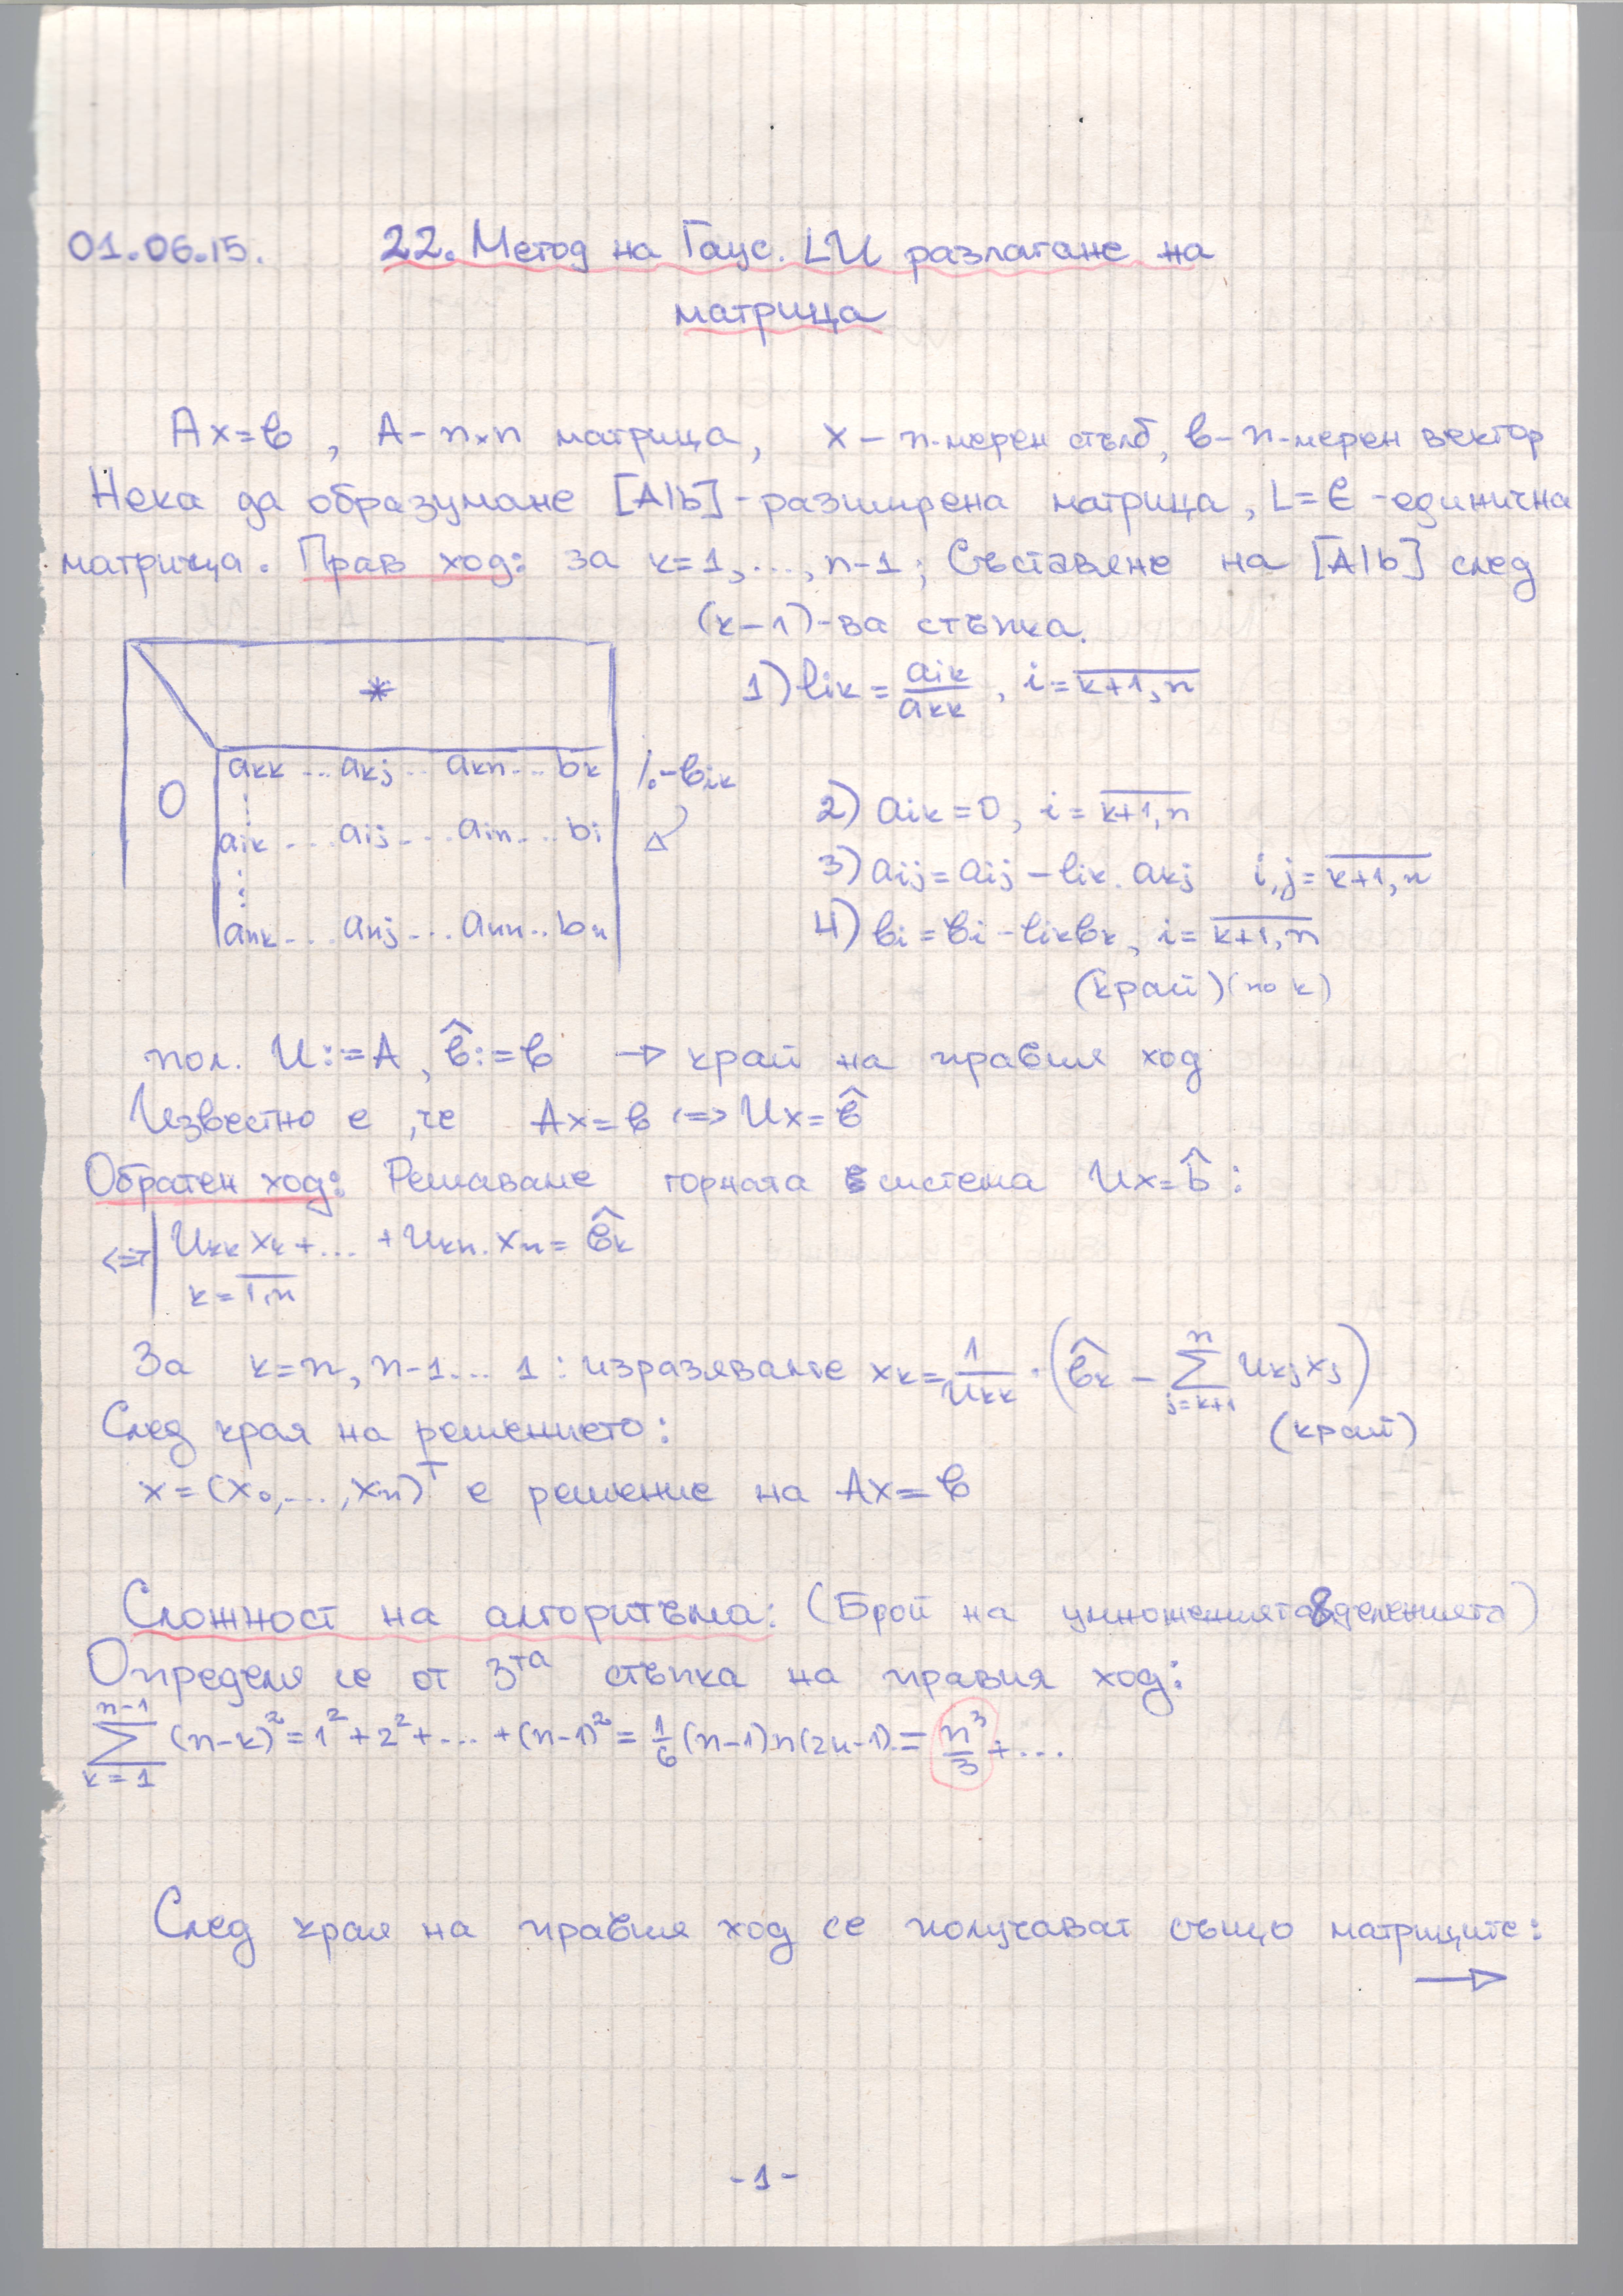 01.06.15. 22. Метод на Гаус. LU разлагане на
матрица
Ax=b , A – n×n матрица, x – n-мерен стълб, b – n-мерен вектор
Нека да образуваме [A|b] - разширена матрица, L=E - единична
матрица. Прав ход: за k=1,...,n-1; Съставяне на [A|b] след
(k-1)-ва стъпка.
1) lik = aik/akk , i = k+1,n
*
akk ... akj ... akn ... bk
0
aik ... aij ... ain ... bi
ank ... anj ... ann .. bn
2) aik = 0, i = k+1,n
3) aij = aij – lik . akj i,j = k+1,n
4) bi = bi - likbk, i = k+1,n
(край) (по k)
пол. U:=A, b̂:=b → край на правия ход
Известно е, че Ax=b <=> Ux=b̂
Обратен ход: Решаване горната система Ux=b̂ :
<=> | Ukk xk + ... + Ukn . xn = b̂k
k = 1,n
За k=n, n-1... 1 : изразяваме xk = 1/ukk . (b̂k – ∑ j=k+1 n ukj xj)
(край)
След края на решението:
x = (x₀,...,xn)ᵀ е решение на Ax=b
Сложност на алгоритъма: (Брой на умноженията & деленията)
Определя се от 3та стъпка на правия ход:
∑ k=1 n-1 (n-k)² = 1² + 2² + ... + (n-1)² = 1/6 (n-1)n(2n-1) = n³/3 + ...
След края на правия ход се получават също матриците:
→
-1-